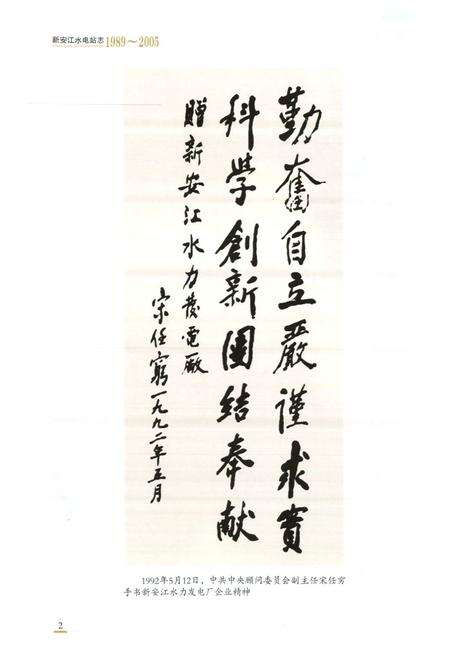 新安江水电站志 1989～2005
勤奮自立嚴謹求實
科学創新團结奉献
贈新安江水力發電廠
宋任窮一九九二年五月
1992年5月12日，中共中央顾问委员会副主任宋任穷
手书新安江水力发电厂企业精神
2